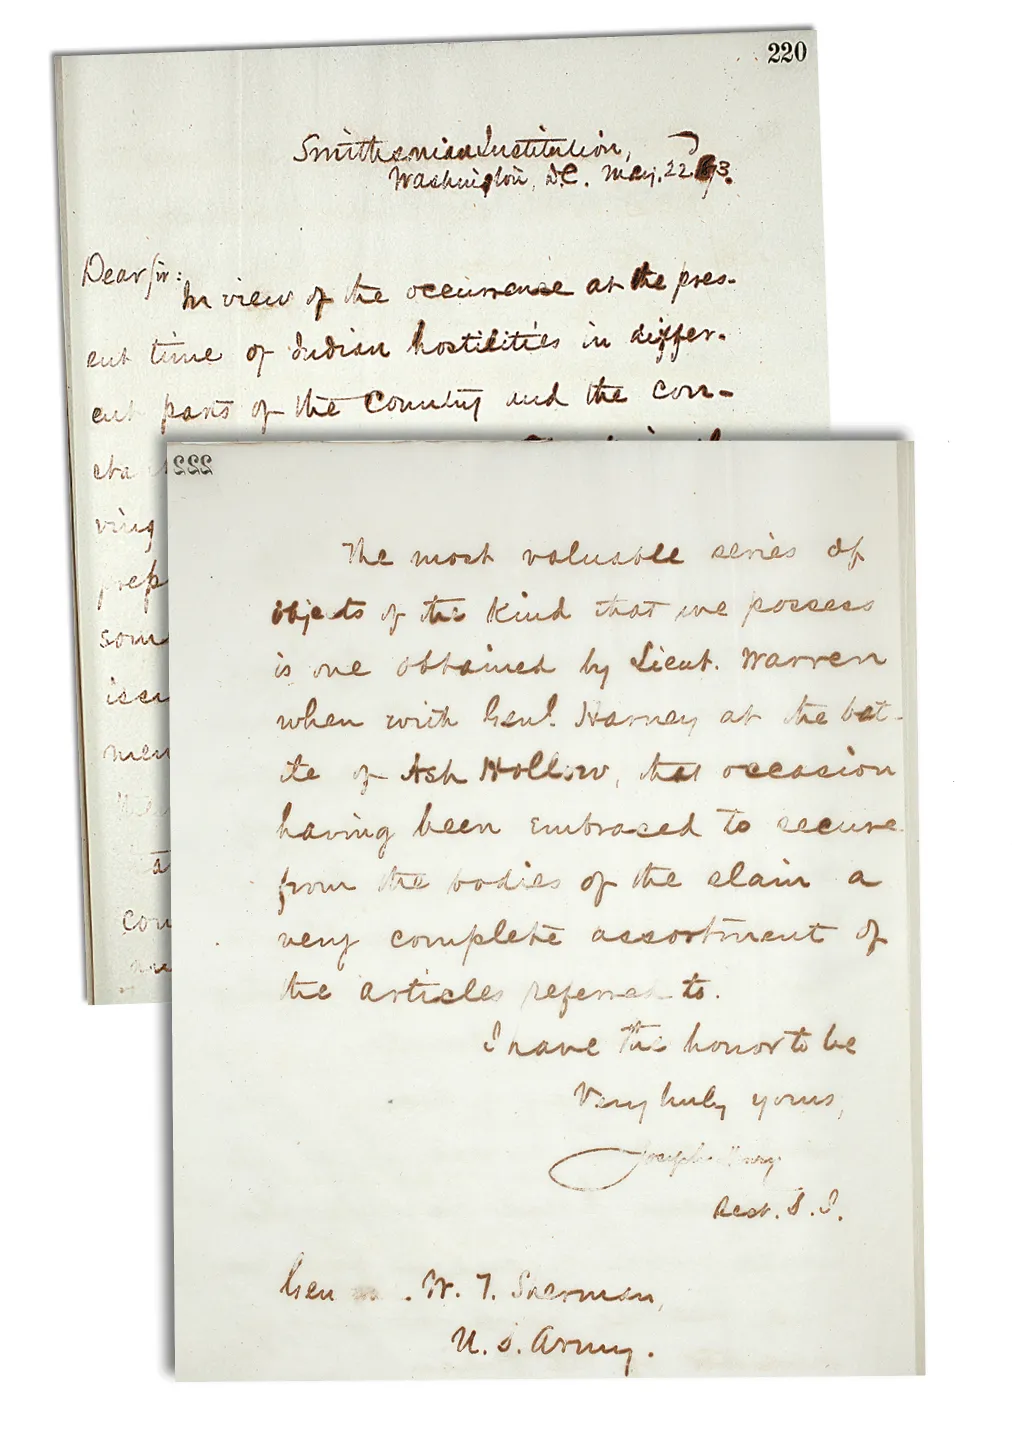 220
Smithsonian Institution,
Washington, D.C. May. 22. 73.
Dear Sir:
In view of the occurrence at the pres-
ent time of Indian hostilities in differ-
ent parts of the Country and the con-
ving
prep
som
men
a
con
222
The most valuable series of
objects of this kind that we possess
is one obtained by Lieut. Warren
when with Genl. Harney at the bat-
tle of Ash Hollow, that occasion
having been embraced to secure
from the bodies of the slain a
very complete assortment of
the articles referred to.
I have the honor to be
Very truly yours,
Joseph Henry
Sect. S. I.
Gen . W. T. Sherman,
U. S. Army.